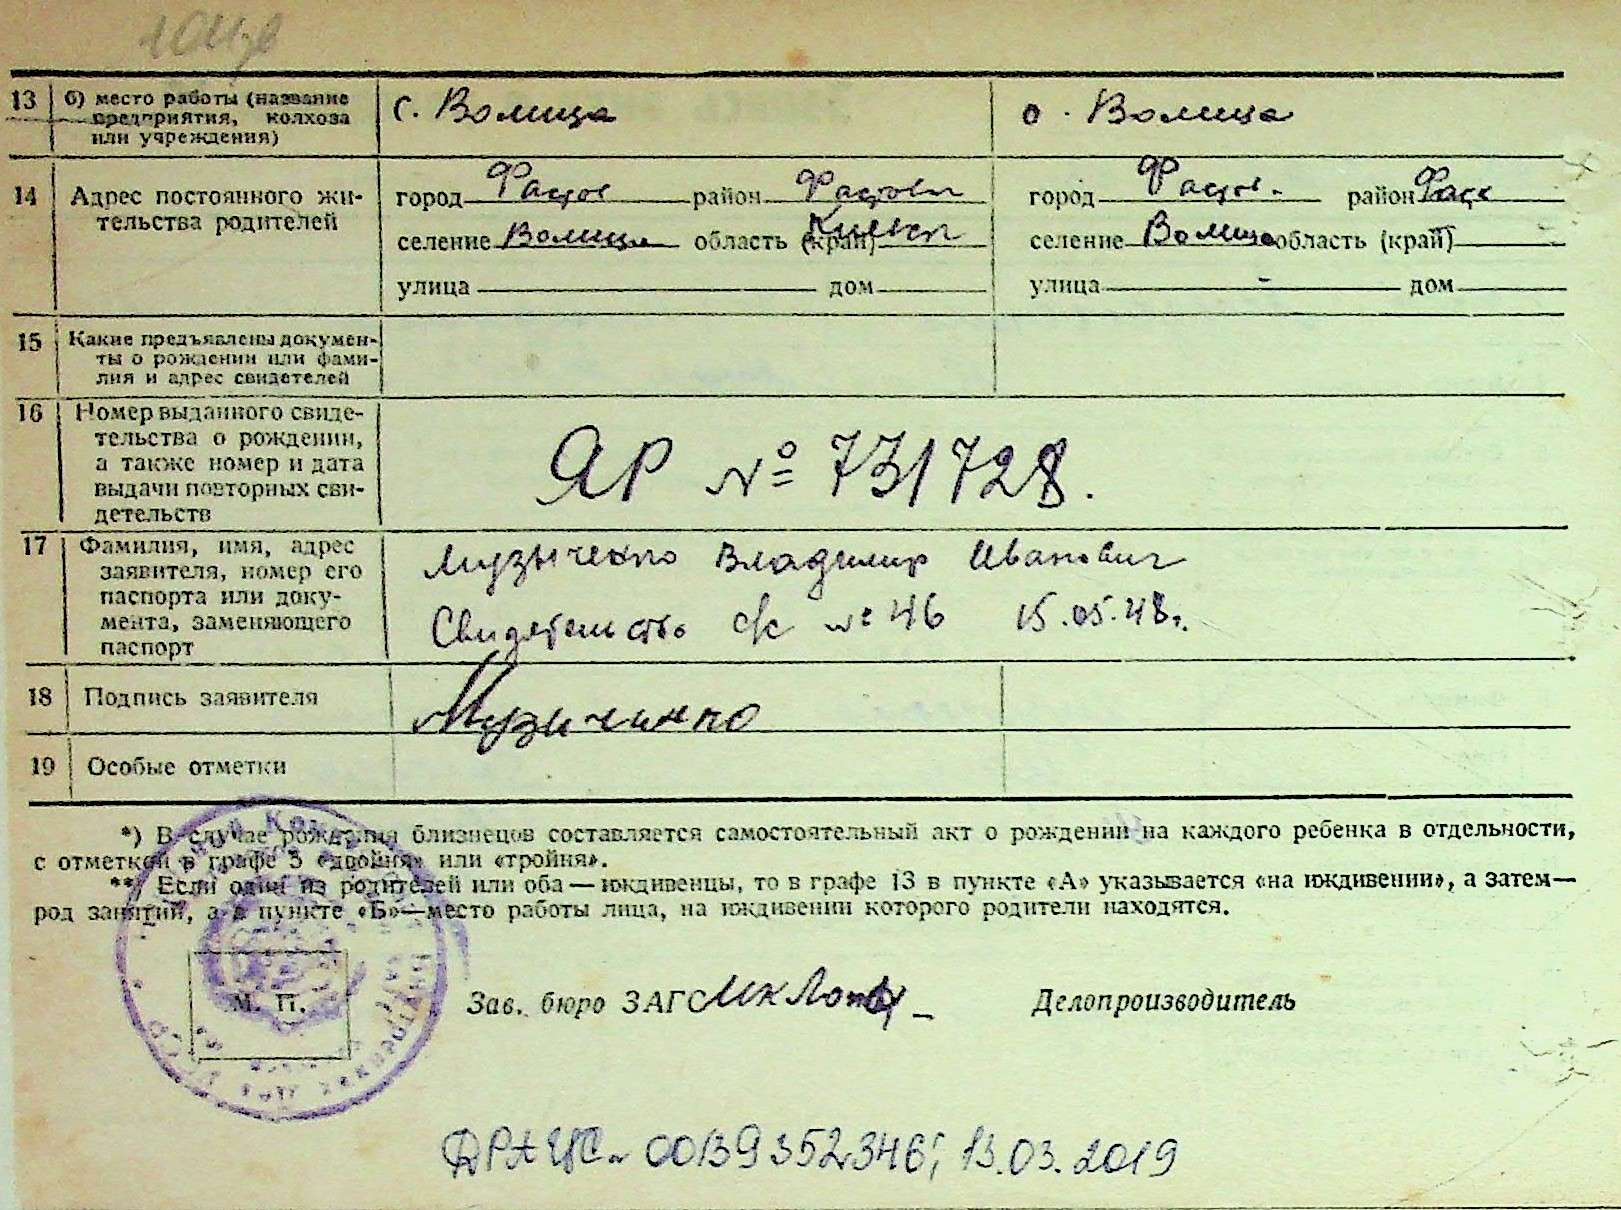 13 б) место работы (название предприятия, колхоза или учреждения) с. Волица с. Волица
14 Адрес постоянного жи-
тельства родителей
город Фастов район Фастовск
селение Волица область (край) Киевск
улица дом
город Фастов. район Фаст
селение Волица область (край)
улица - дом
15 Какие предъявлены докумен-
ты о рождении или фами-
лия и адрес свидетелей
16 Номер выданного свиде-
тельства о рождении,
а также номер и дата
выдачи повторных сви-
детельств
ЯР № 731728.
17 Фамилия, имя, адрес
заявителя, номер его
паспорта или доку-
мента, заменяющего
паспорт
Музыченко Владимир Иванович
Свидетельство с/с № 46 15.05.48г.
18 Подпись заявителя Музиченко
19 Особые отметки
*) В случае рождения близнецов составляется самостоятельный акт о рождении на каждого ребенка в отдельности,
с отметкой в графе 3 «двойня» или «тройня».
**) Если один из родителей или оба — иждивенцы, то в графе 13 в пункте «А» указывается «на иждивении», а затем—
род занятий, а в пункте «Б»—место работы лица, на иждивении которого родители находятся.
М. П.
Зав. бюро ЗАГС Делопроизводитель
ДРАЦС 00139352346; 13.03.2019